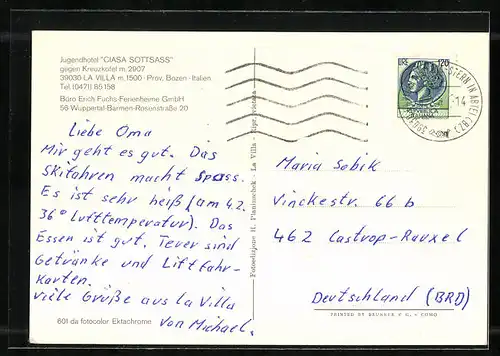 Jugendhotel "CIASA SOTTSASS"
gegen Kreuzkofel m. 2907
39030-LA VILLA m. 1500 - Prov. Bozen - Italien
Tel. (0471) 85158
Büro Erich Fuchs-Ferienheime GmbH
56 Wuppertal-Barmen-Rosenstraße 20
Liebe Oma
Mir geht es gut. Das
Skifahren macht Spass.
Es ist sehr heiß (am 4.2.
36° Lufttemperatur). Das
Essen ist gut. Teuer sind
Getränke und Liftfahr-
karten.
Viele Grüße aus La Villa
von Michael.
601 da fotocolor Ektachrome
Fotoedizione H. Planinschek - La Villa - Ripr. vietata
LIRE 120
STERN IN ABTEI (BZ)
Maria Sobik
Vinckestr. 66 b
462 Castrop-Rauxel
Deutschland (BRD)
PRINTED BY BRUNNER & C. - COMO